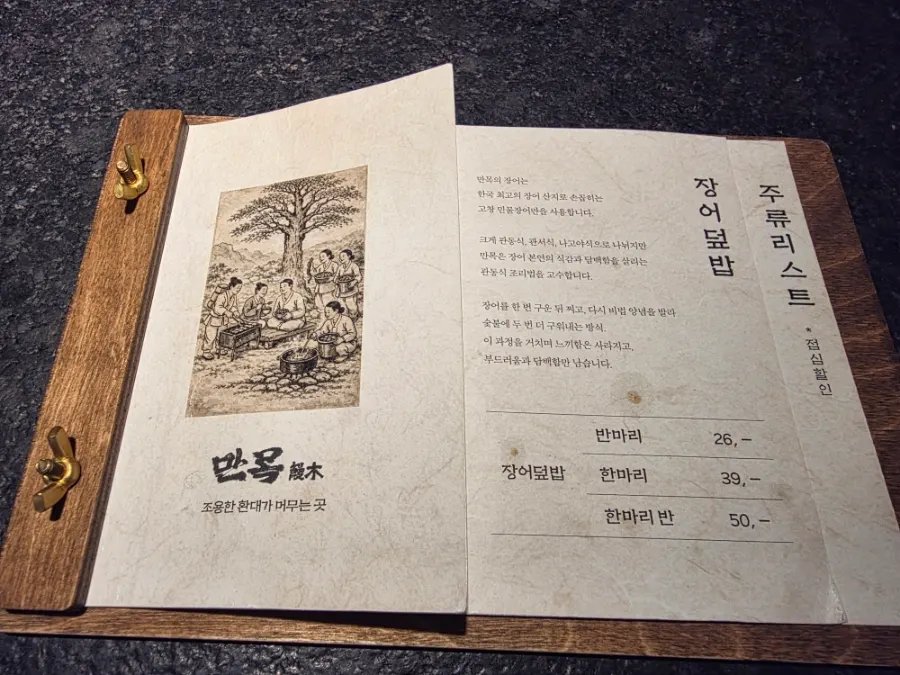 만목 鰻木
조용한 환대가 머무는 곳
장어덮밥
만목의 장어는
한국 최고의 장어 산지로 손꼽히는
고창 민물장어만을 사용합니다.
크게 관동식, 관서식, 나고야식으로 나뉘지만
만목은 장어 본연의 식감과 담백함을 살리는
관동식 조리법을 고수합니다.
장어를 한 번 구운 뒤 찌고, 다시 비법 양념을 발라
숯불에 두 번 더 구워내는 방식.
이 과정을 거치며 느끼함은 사라지고,
부드러움과 담백함만 남습니다.
장어덮밥
반마리 26,-
한마리 39,-
한마리 반 50,-
주류리스트 *점심할인